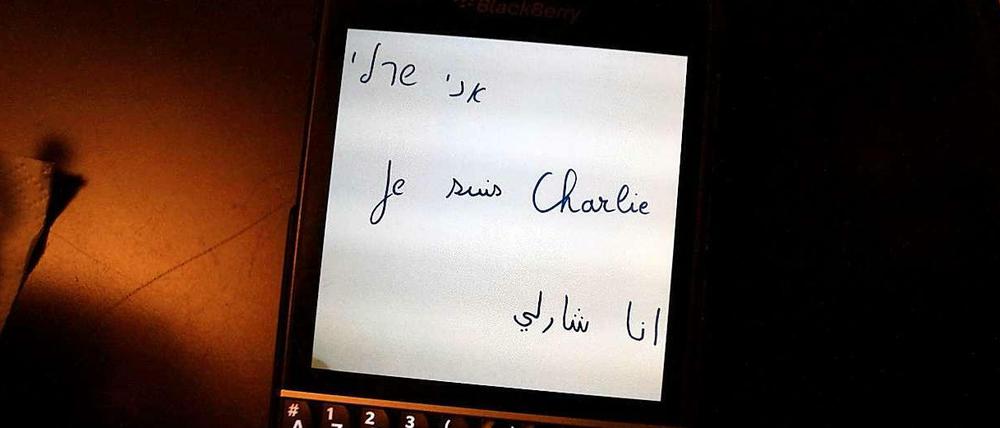 BlackBerry
אני שרלי
Je suis Charlie
انا شارلي
# 1 2 3 (